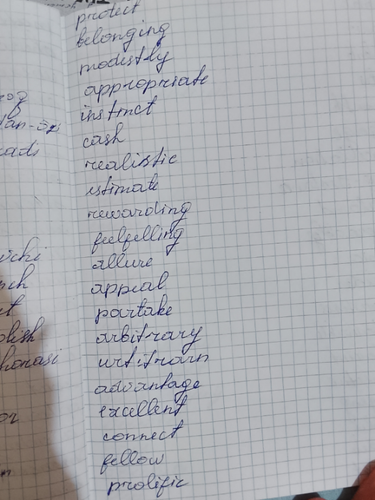 protect
belonging
modestly
appropriate
instinct
cash
realistic
estimate
rewarding
feelfelling
allure
appeal
partake
arbitrary
advantage
excellent
connect
fellow
prolific